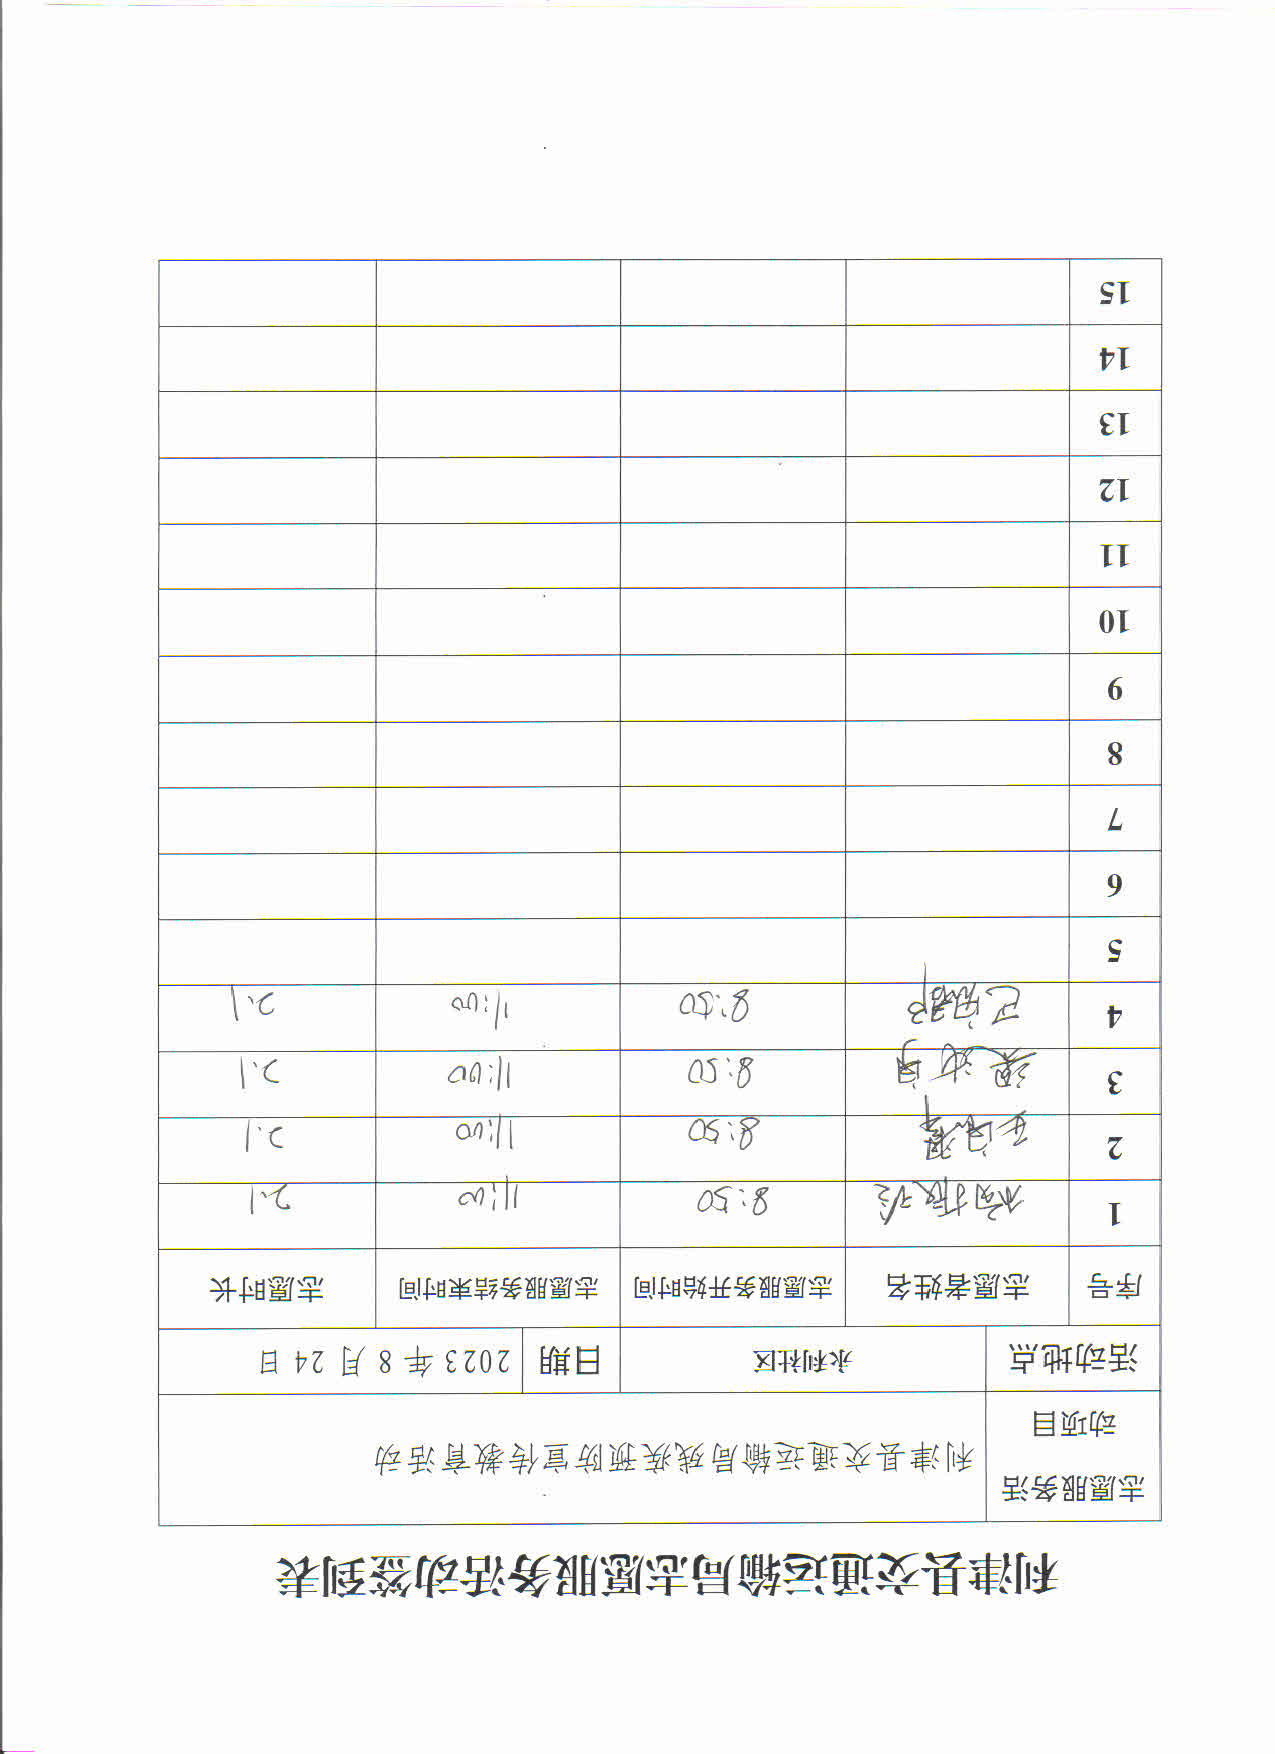 利津县交通运输局志愿服务活动签到表
志愿服务活动项目 利津县交通运输局残疾预防宣传教育活动
活动地点 永利社区 日期 2023年8月24日
序号 志愿者姓名 志愿服务开始时间 志愿服务结束时间 志愿时长
1 8:50 11:00 2.1
2 8:50 11:00 2.1
3 8:50 11:00 2.1
4 8:50 11:00 2.1
5
6
7
8
9
10
11
12
13
14
15